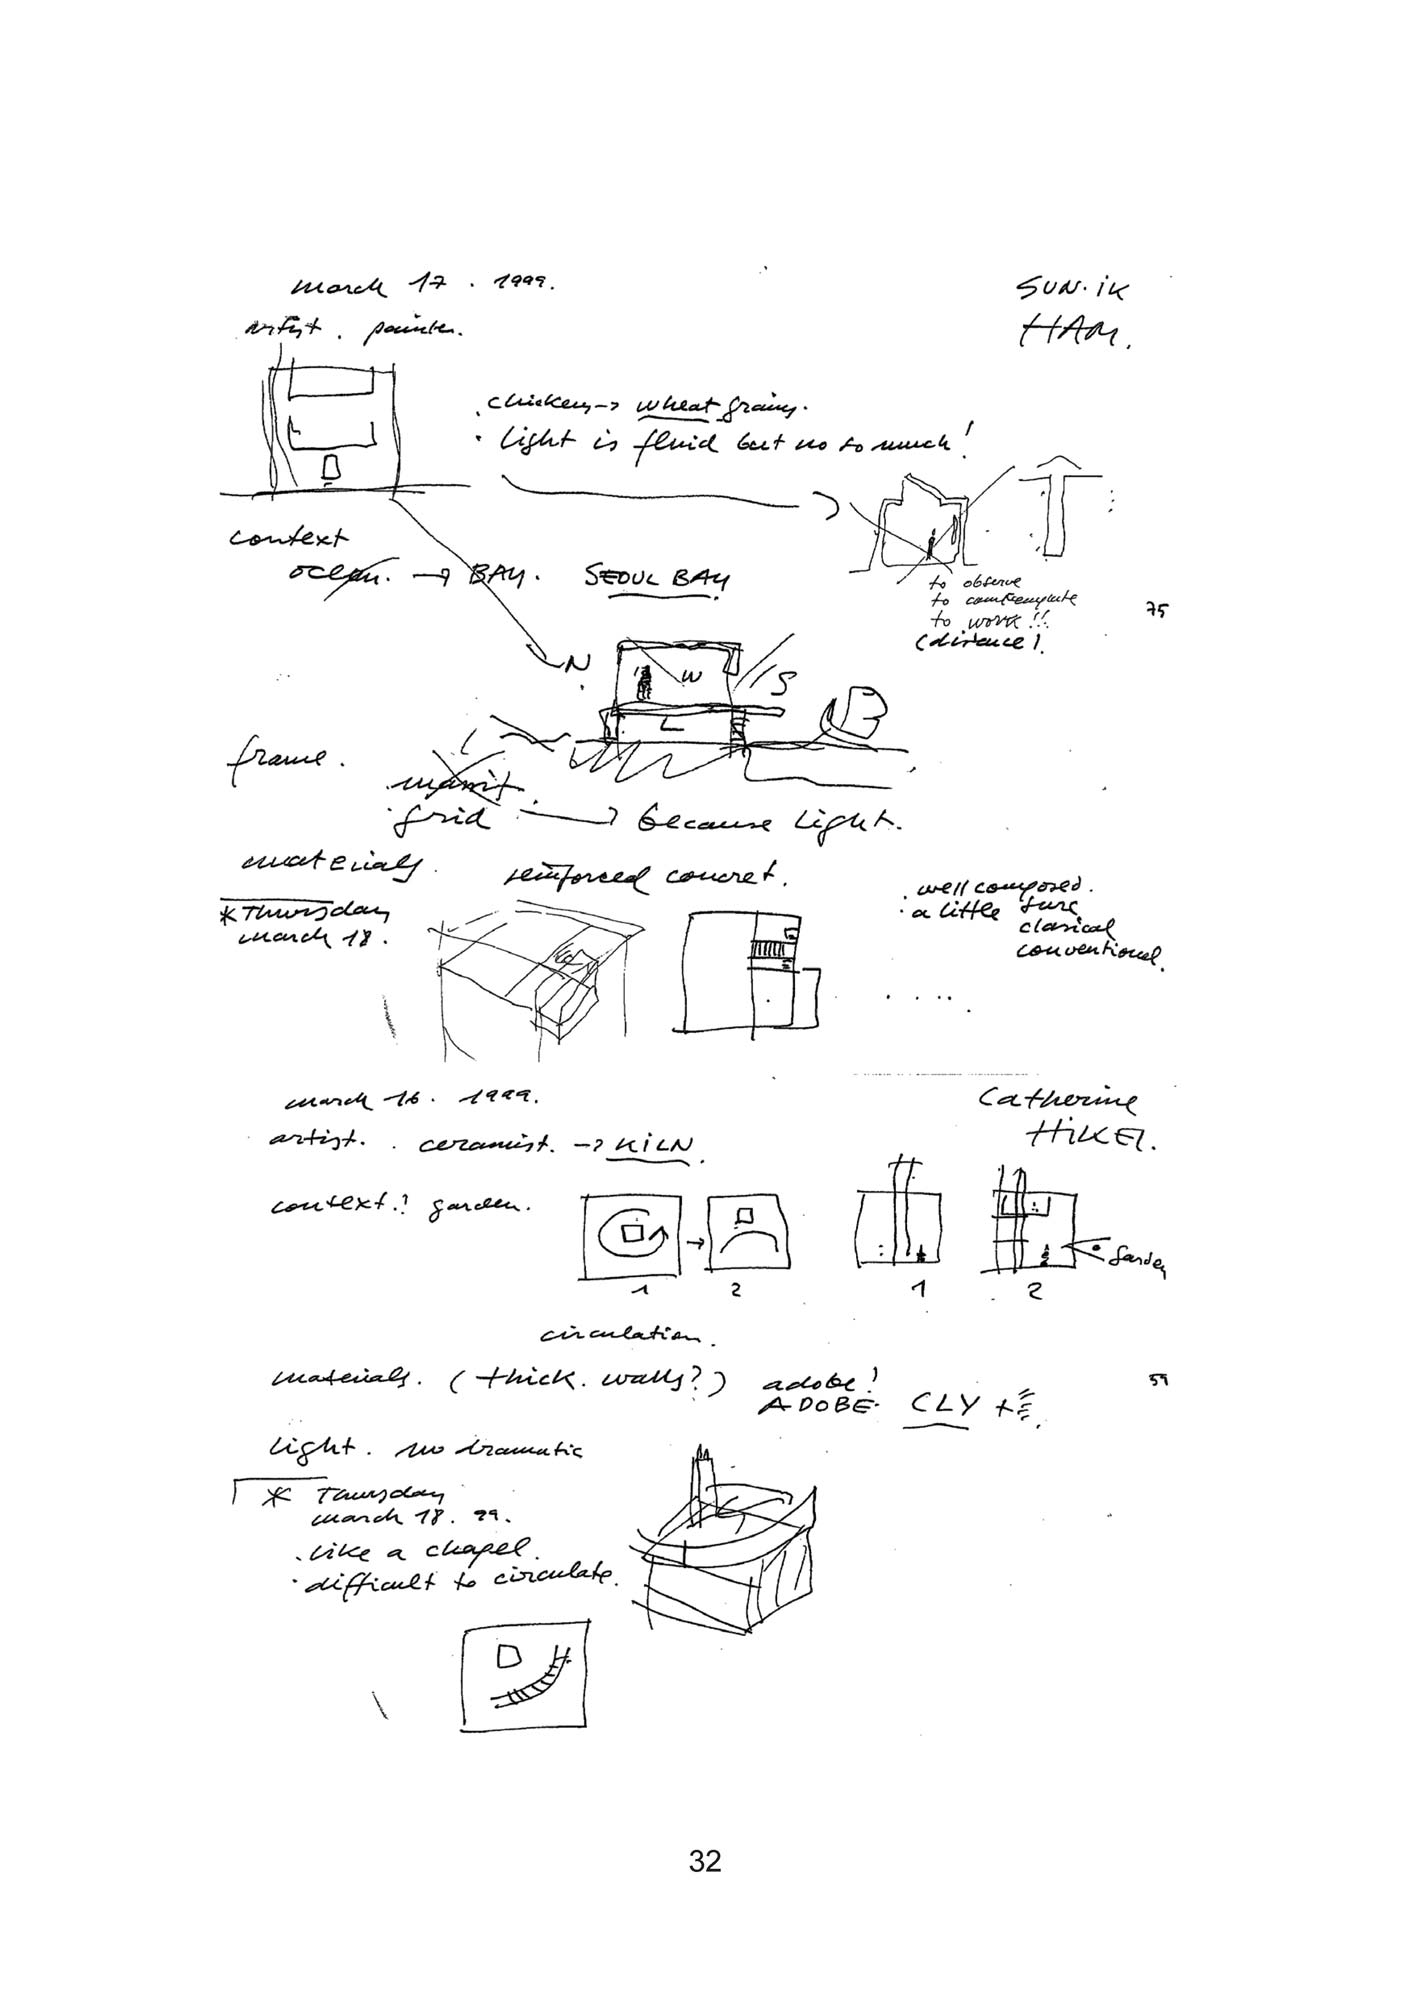 march 17 . 1999.
SUN.iK
HAM.
artist . painter.
. chickens -> wheat grains.
. light is fluid but no so much!
context
ocean. -> BAY. SEOUL BAY
to observe
to comtemplate
to work!!
(distance).
75
N
W
S
L
frame.
grid -> because light.
materials.
reinforced concret.
. well composed.
. a little sure
clasical
conventional.
* Thursday
march 18.
march 16. 1999.
Catherine
HiLKER.
artist. . ceramist. -> KiLN.
context.! garden.
garden
1
2
1
2
circulation.
materials. (thick. walls?) adobe!
ADOBE. CLY +
59
light. no dramatic
* Thursday
march 18. 99.
. like a chapel.
. difficult to circulate.
32